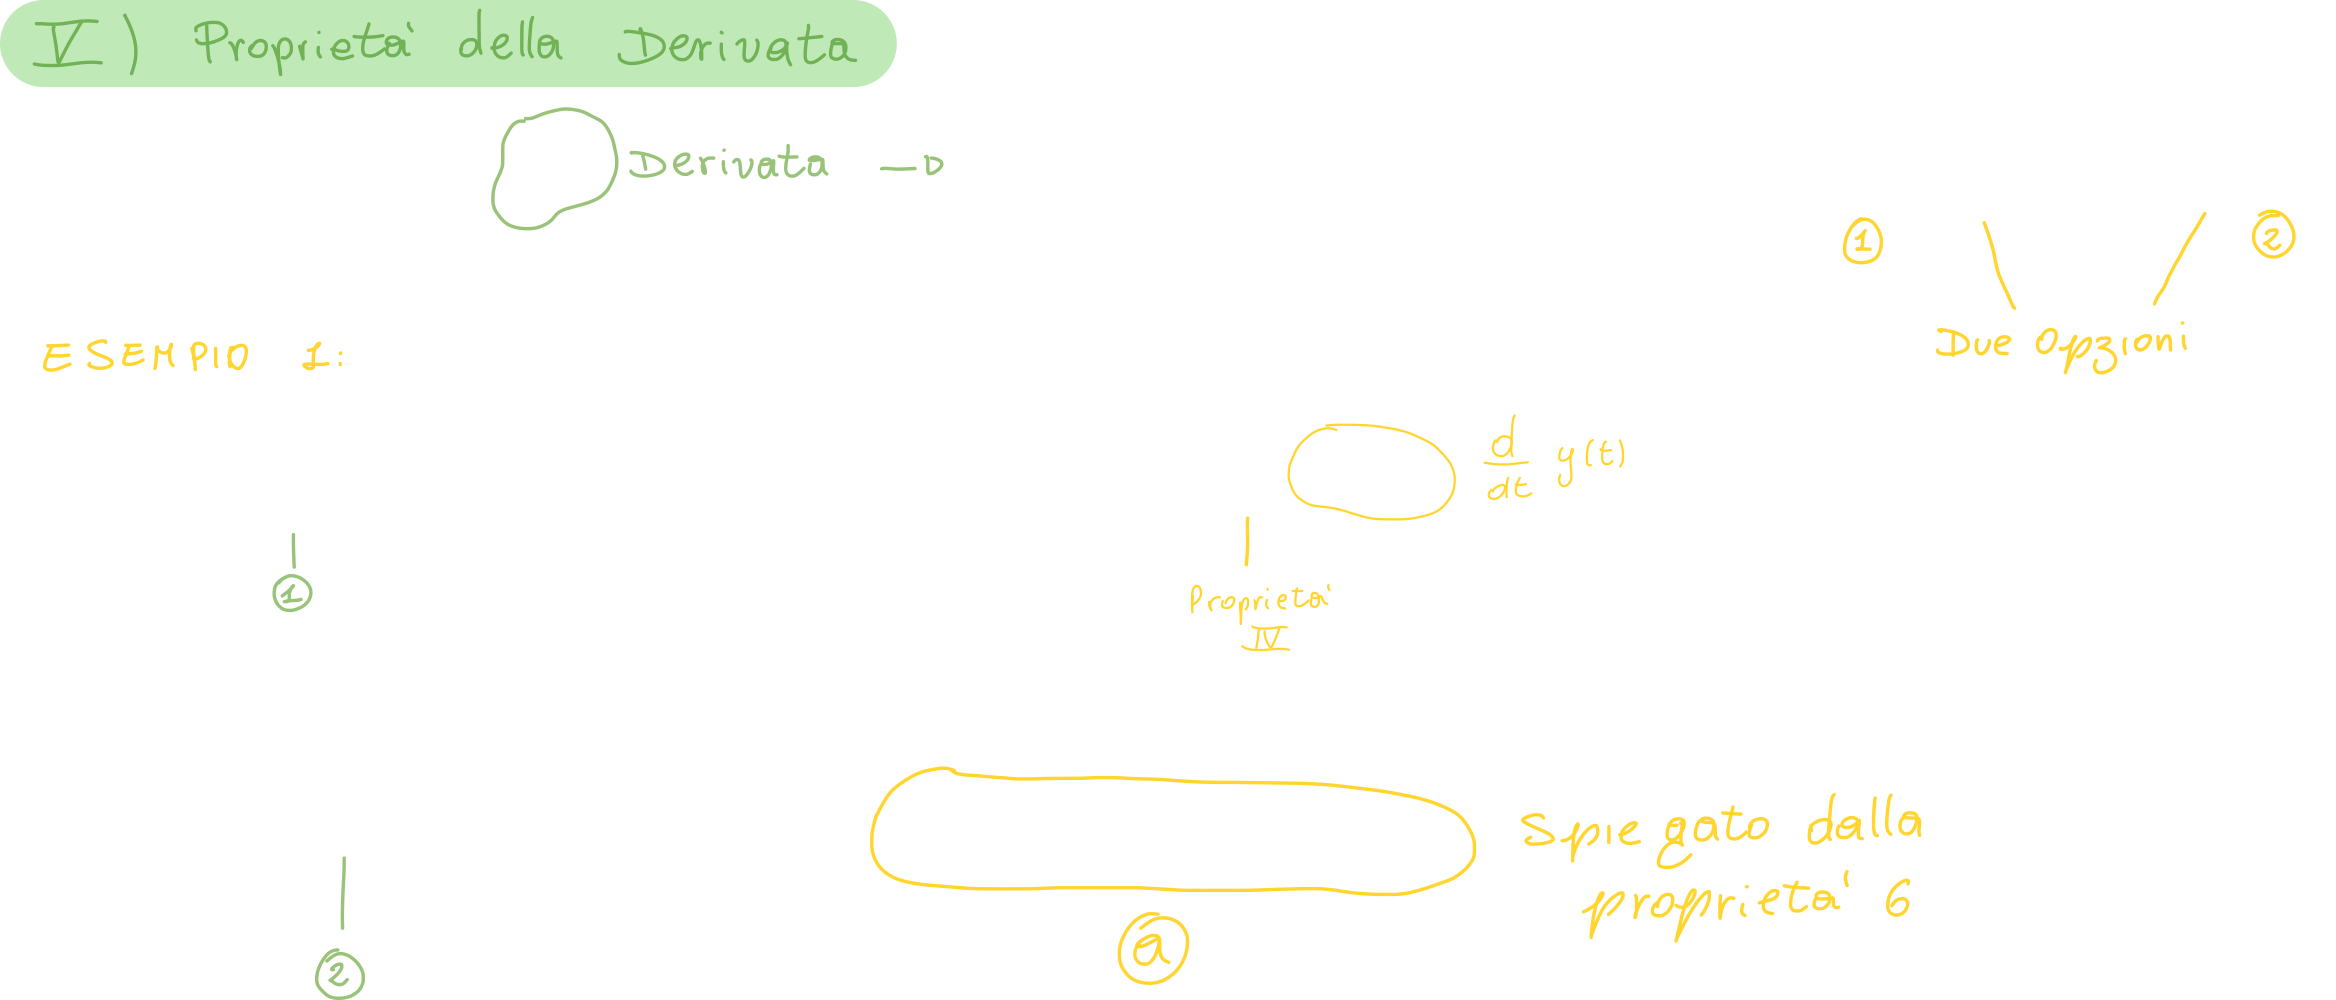 V) Proprietà della Derivata
Derivata →
① ②
Due Opzioni
ESEMPIO 1:
d/dt y(t)
①
Proprietà
IV
Spiegato dalla
proprietà 6
ⓐ
②